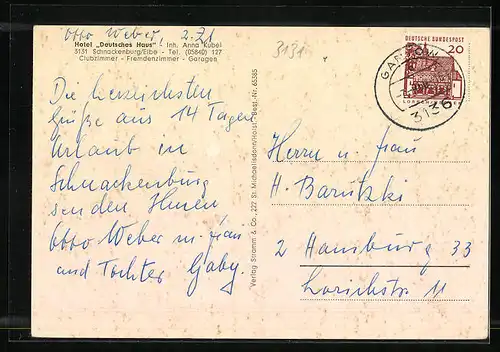 Otto Weber, 2.71
Hotel „Deutsches Haus" · Inh. Anna Kubel
3131 Schnackenburg/Elbe · Tel. (05840) 127
Clubzimmer - Fremdenzimmer - Garagen
Die herzlichsten
Grüße aus 14 Tagen
Urlaub in
Schnackenburg
senden Ihnen
Otto Weber u. Frau
und Tochter Gaby.
Verlag Stramm & Co., 227 St. Michaelisdonn/Holst. · Best.-Nr. 65585
3131
DEUTSCHE BUNDESPOST
20
GARTOW
3136
Herrn u. Frau
H. Barutzki
2 Hamburg 33
11